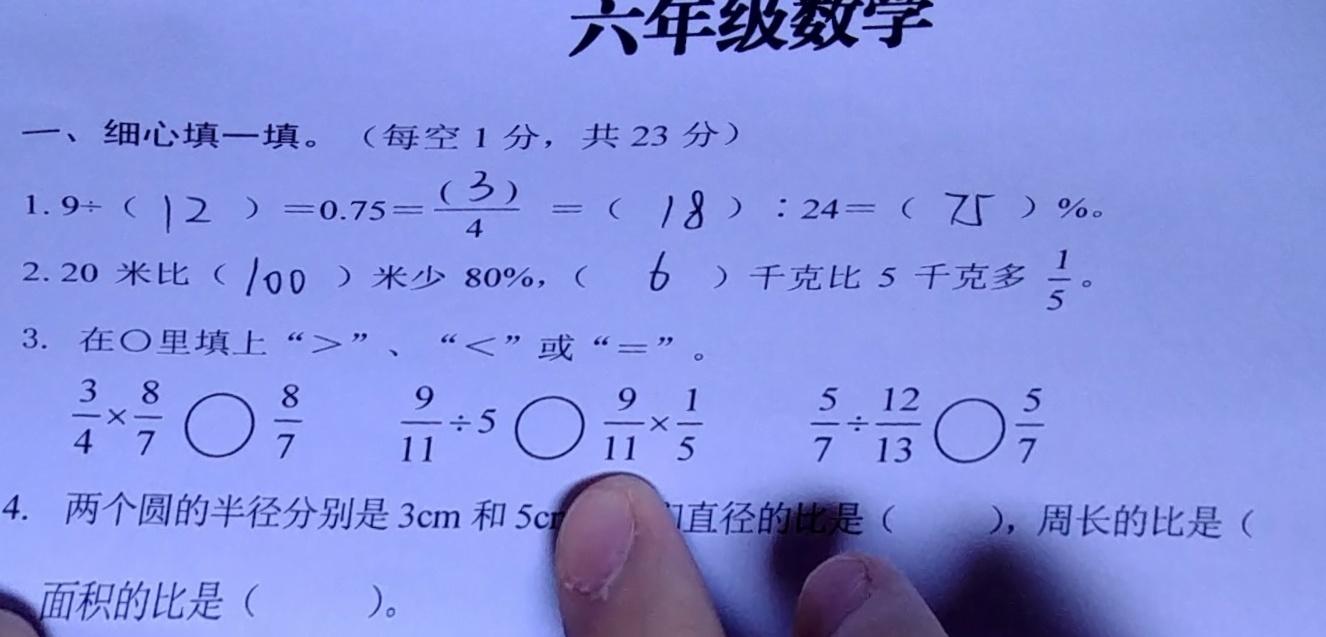 六年级数学
一、细心填一填。（每空 1 分，共 23 分）
1. 9÷（ 12 ）＝0.75＝(3)/4 ＝（ 18 ）：24＝（ 75 ）%。
2. 20 米比（ 100 ）米少 80%，（ 6 ）千克比 5 千克多 1/5。
3. 在○里填上“＞”、“＜”或“＝”。
3/4×8/7 ○ 8/7  9/11÷5 ○ 9/11×1/5  5/7÷12/13 ○ 5/7
4. 两个圆的半径分别是 3cm 和 5c 直径的比是（ ），周长的比是（
面积的比是（ ）。